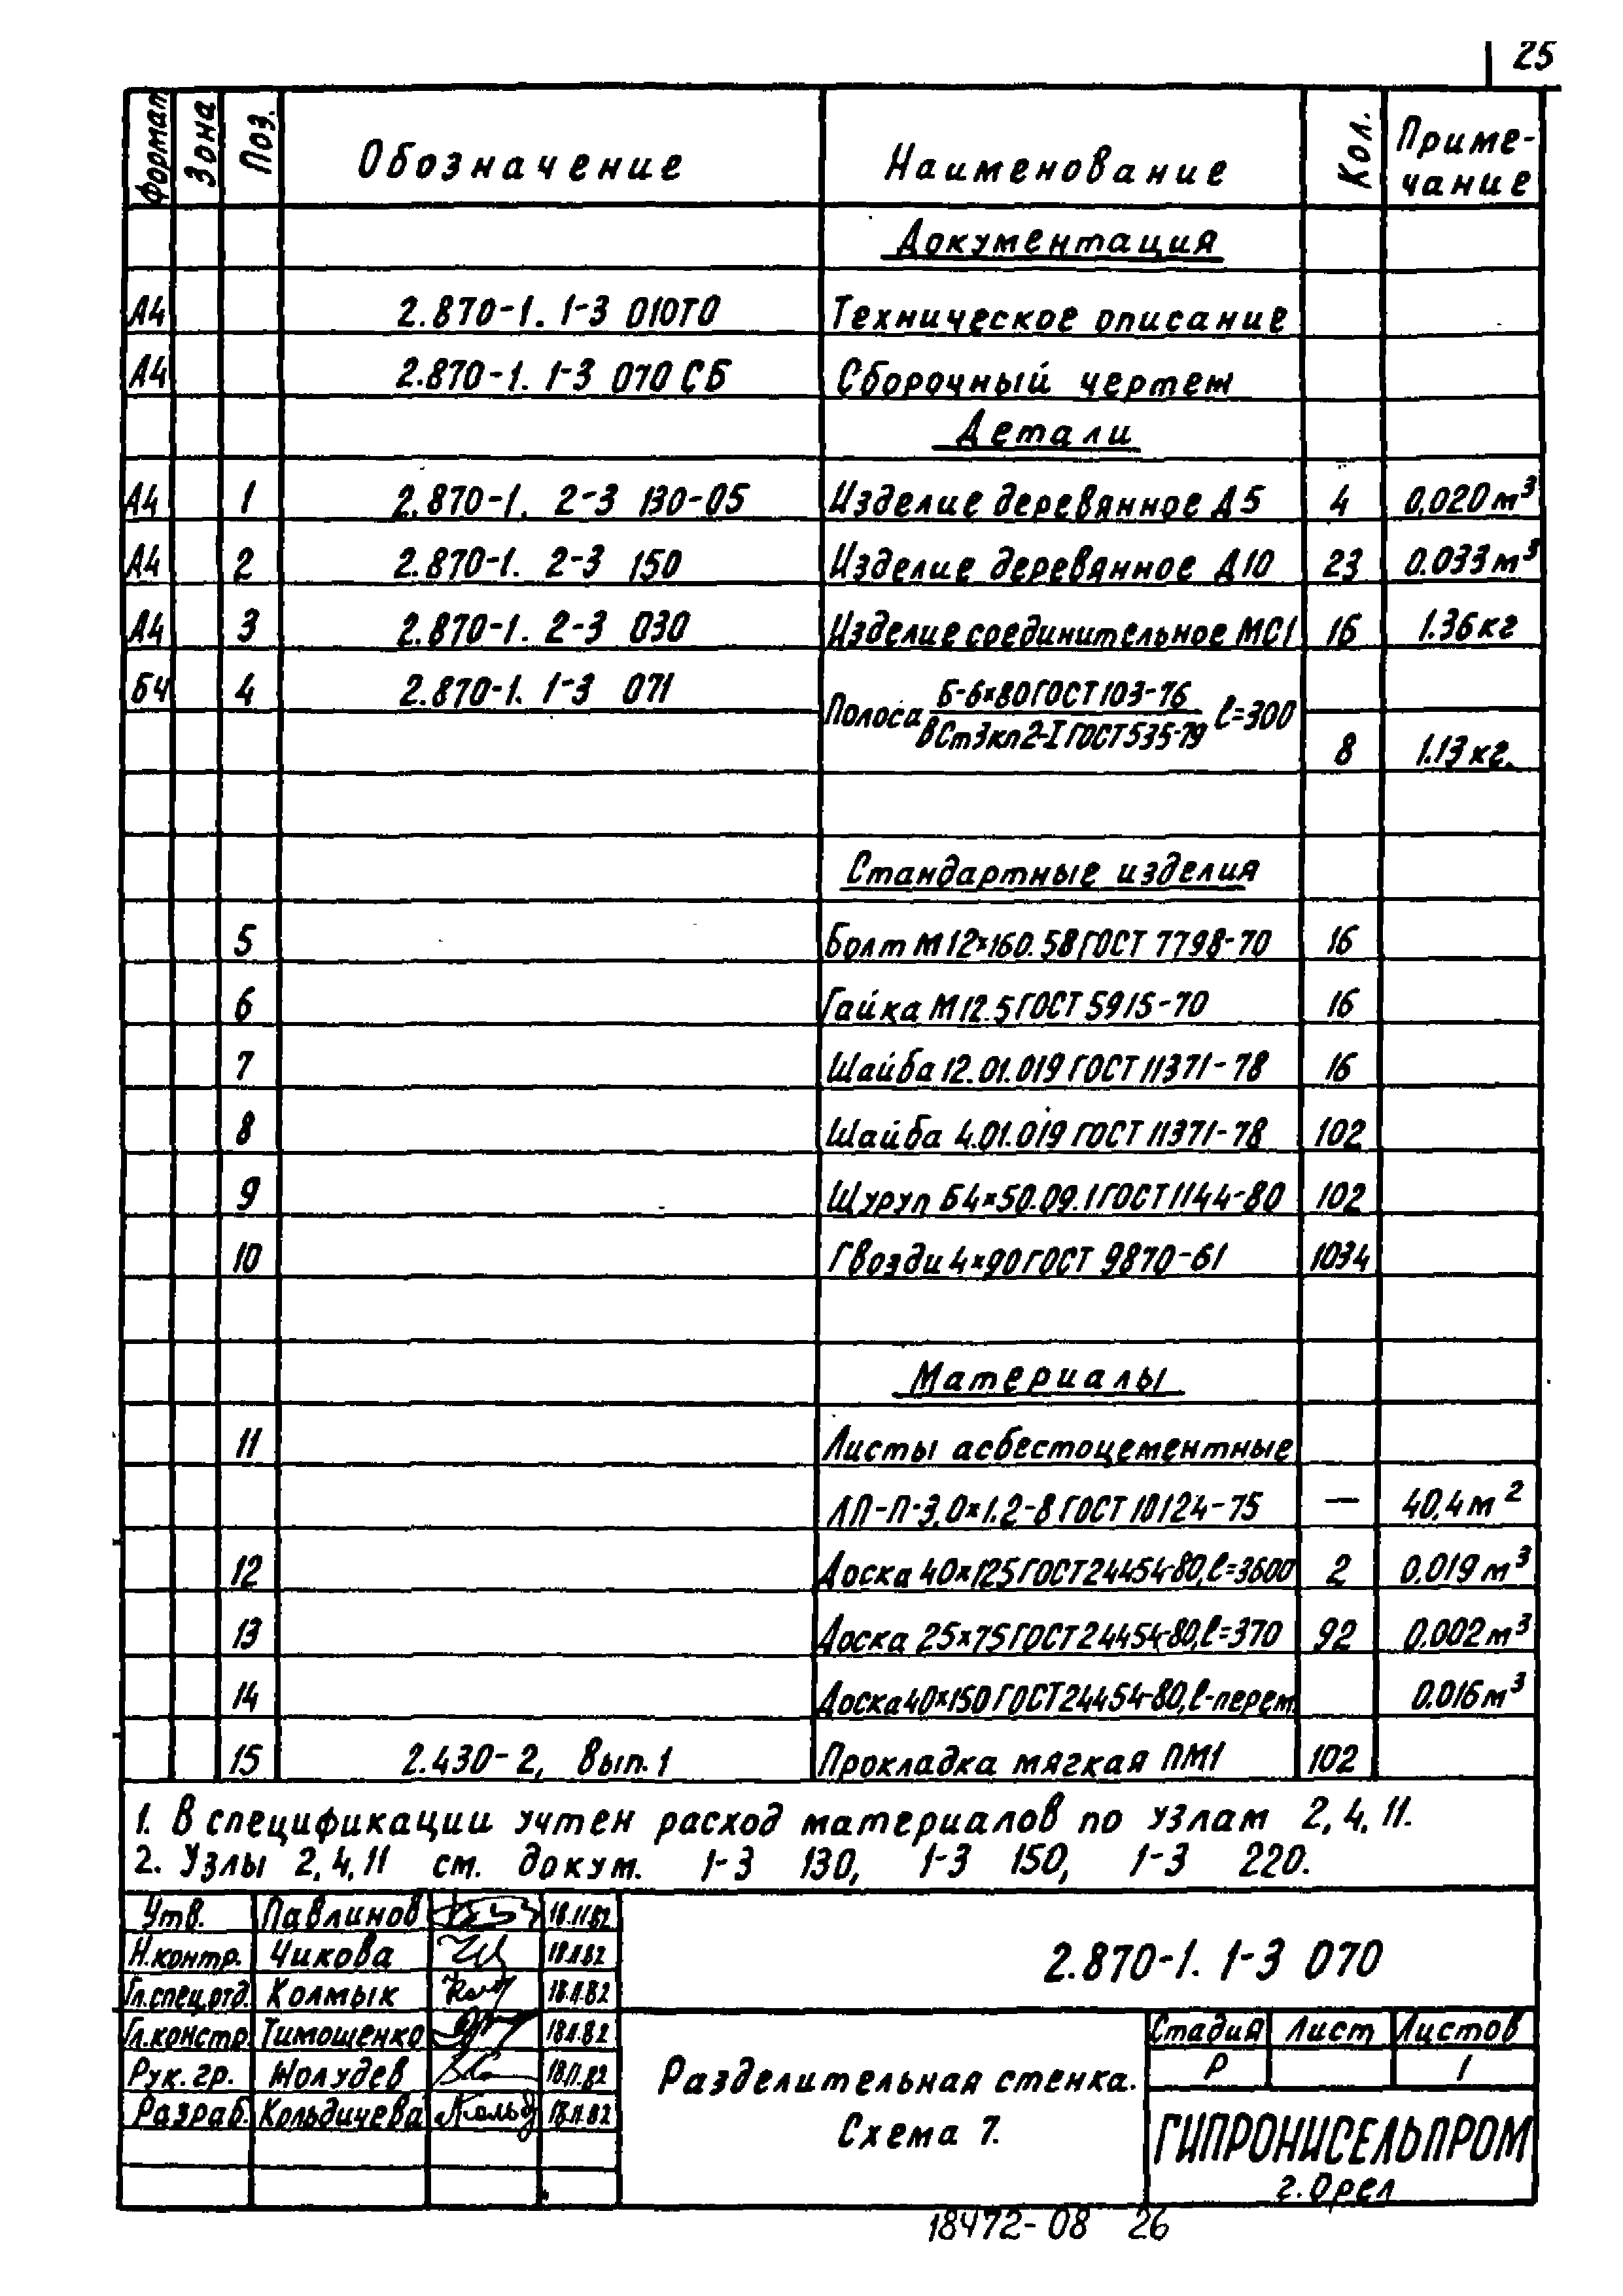 25
Формат Зона Поз. Обозначение Наименование Кол. Приме-
чание
Документация
А4 2.870-1. 1-3 010ТО Техническое описание
А4 2.870-1. 1-3 070 СБ Сборочный чертеж
Детали
А4 1 2.870-1. 2-3 130-05 Изделие деревянное Д5 4 0,020 м³
А4 2 2.870-1. 2-3 150 Изделие деревянное Д10 23 0.033 м³
А4 3 2.870-1. 2-3 030 Изделие соединительное МС1 16 1.36 кг
БЧ 4 2.870-1. 1-3 071 Полоса Б-6×80 ГОСТ 103-76 ℓ=300
ВСт3кп2-I ГОСТ 535-79 8 1.13 кг.
Стандартные изделия
5 Болт М12×160.58 ГОСТ 7798-70 16
6 Гайка М12.5 ГОСТ 5915-70 16
7 Шайба 12.01.019 ГОСТ 11371-78 16
8 Шайба 4.01.019 ГОСТ 11371-78 102
9 Шуруп Б4×50.09.1 ГОСТ 1144-80 102
10 Гвозди 4×90 ГОСТ 9870-61 1034
Материалы
11 Листы асбестоцементные
ЛП-П-3,0×1.2-8 ГОСТ 18124-75 — 40,4 м²
12 Доска 40×125 ГОСТ 24454-80, ℓ=3600 2 0,019 м³
13 Доска 25×75 ГОСТ 24454-80, ℓ=370 92 0,002 м³
14 Доска 40×150 ГОСТ 24454-80, ℓ-перем. 0.016 м³
15 2.430-2, Вып. 1 Прокладка мягкая ПМ1 102
1. В спецификации учтен расход материалов по узлам 2, 4, 11.
2. Узлы 2, 4, 11 см. докум. 1-3 130, 1-3 150, 1-3 220.
Утв. Павлинов 18.11.82
Н.контр. Чикова 18.11.82
Гл.спец.отд. Колмык 18.11.82
Гл.констр. Тимошенко 18.11.82
Рук. гр. Жолудев 18.11.82
Разраб. Кольдичева 18.11.82
2.870-1. 1-3 070
Разделительная стенка.
Схема 7.
Стадия Лист Листов
Р 1
ГИПРОНИСЕЛЬПРОМ
г. Орел
18472-08 26